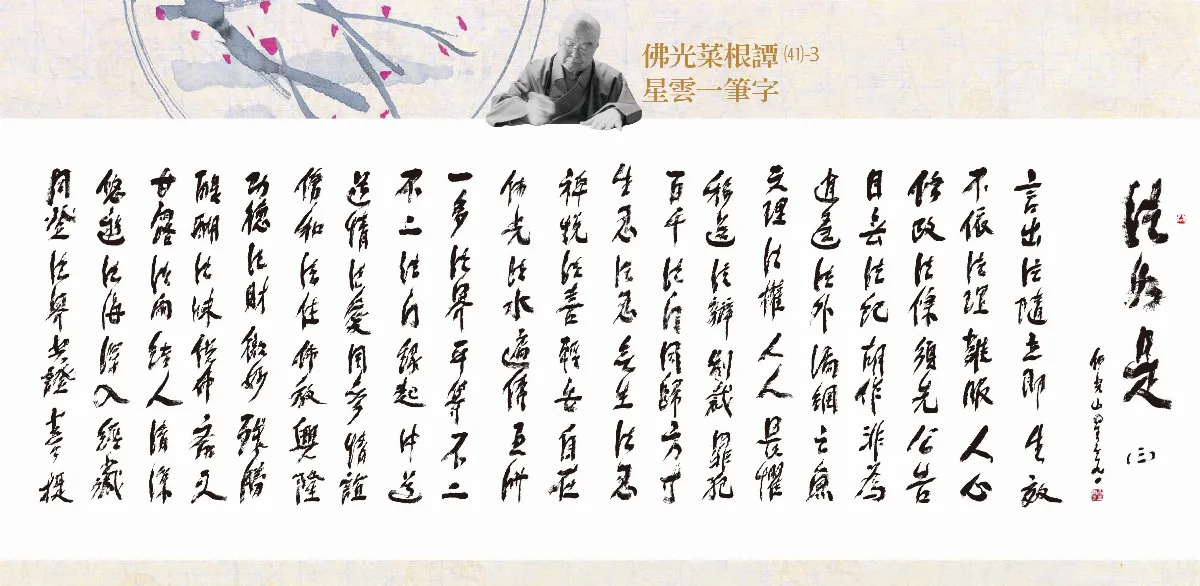 佛光菜根譚(41)-3
星雲一筆字
法如是
(三)
佛光山星雲
言出法隨立即生效
不依法理難服人心
修改法條須先公告
目無法紀胡作非為
逍遙法外漏網之魚
理法權人人畏懼
移送法辦制裁罪犯
百千法門同歸方寸
生忍法忍無生法忍
禪悅法喜輕安自在
佛光法水遍傳五洲
一多法界平等不二
不二法門緣起中道
道情法愛同參情誼
僧和法住佛教興隆
功德法財微妙殊勝
醍醐法味供佛齋天
甘露法雨給人清涼
悠遊法海深入經藏
同登法界共證菩提